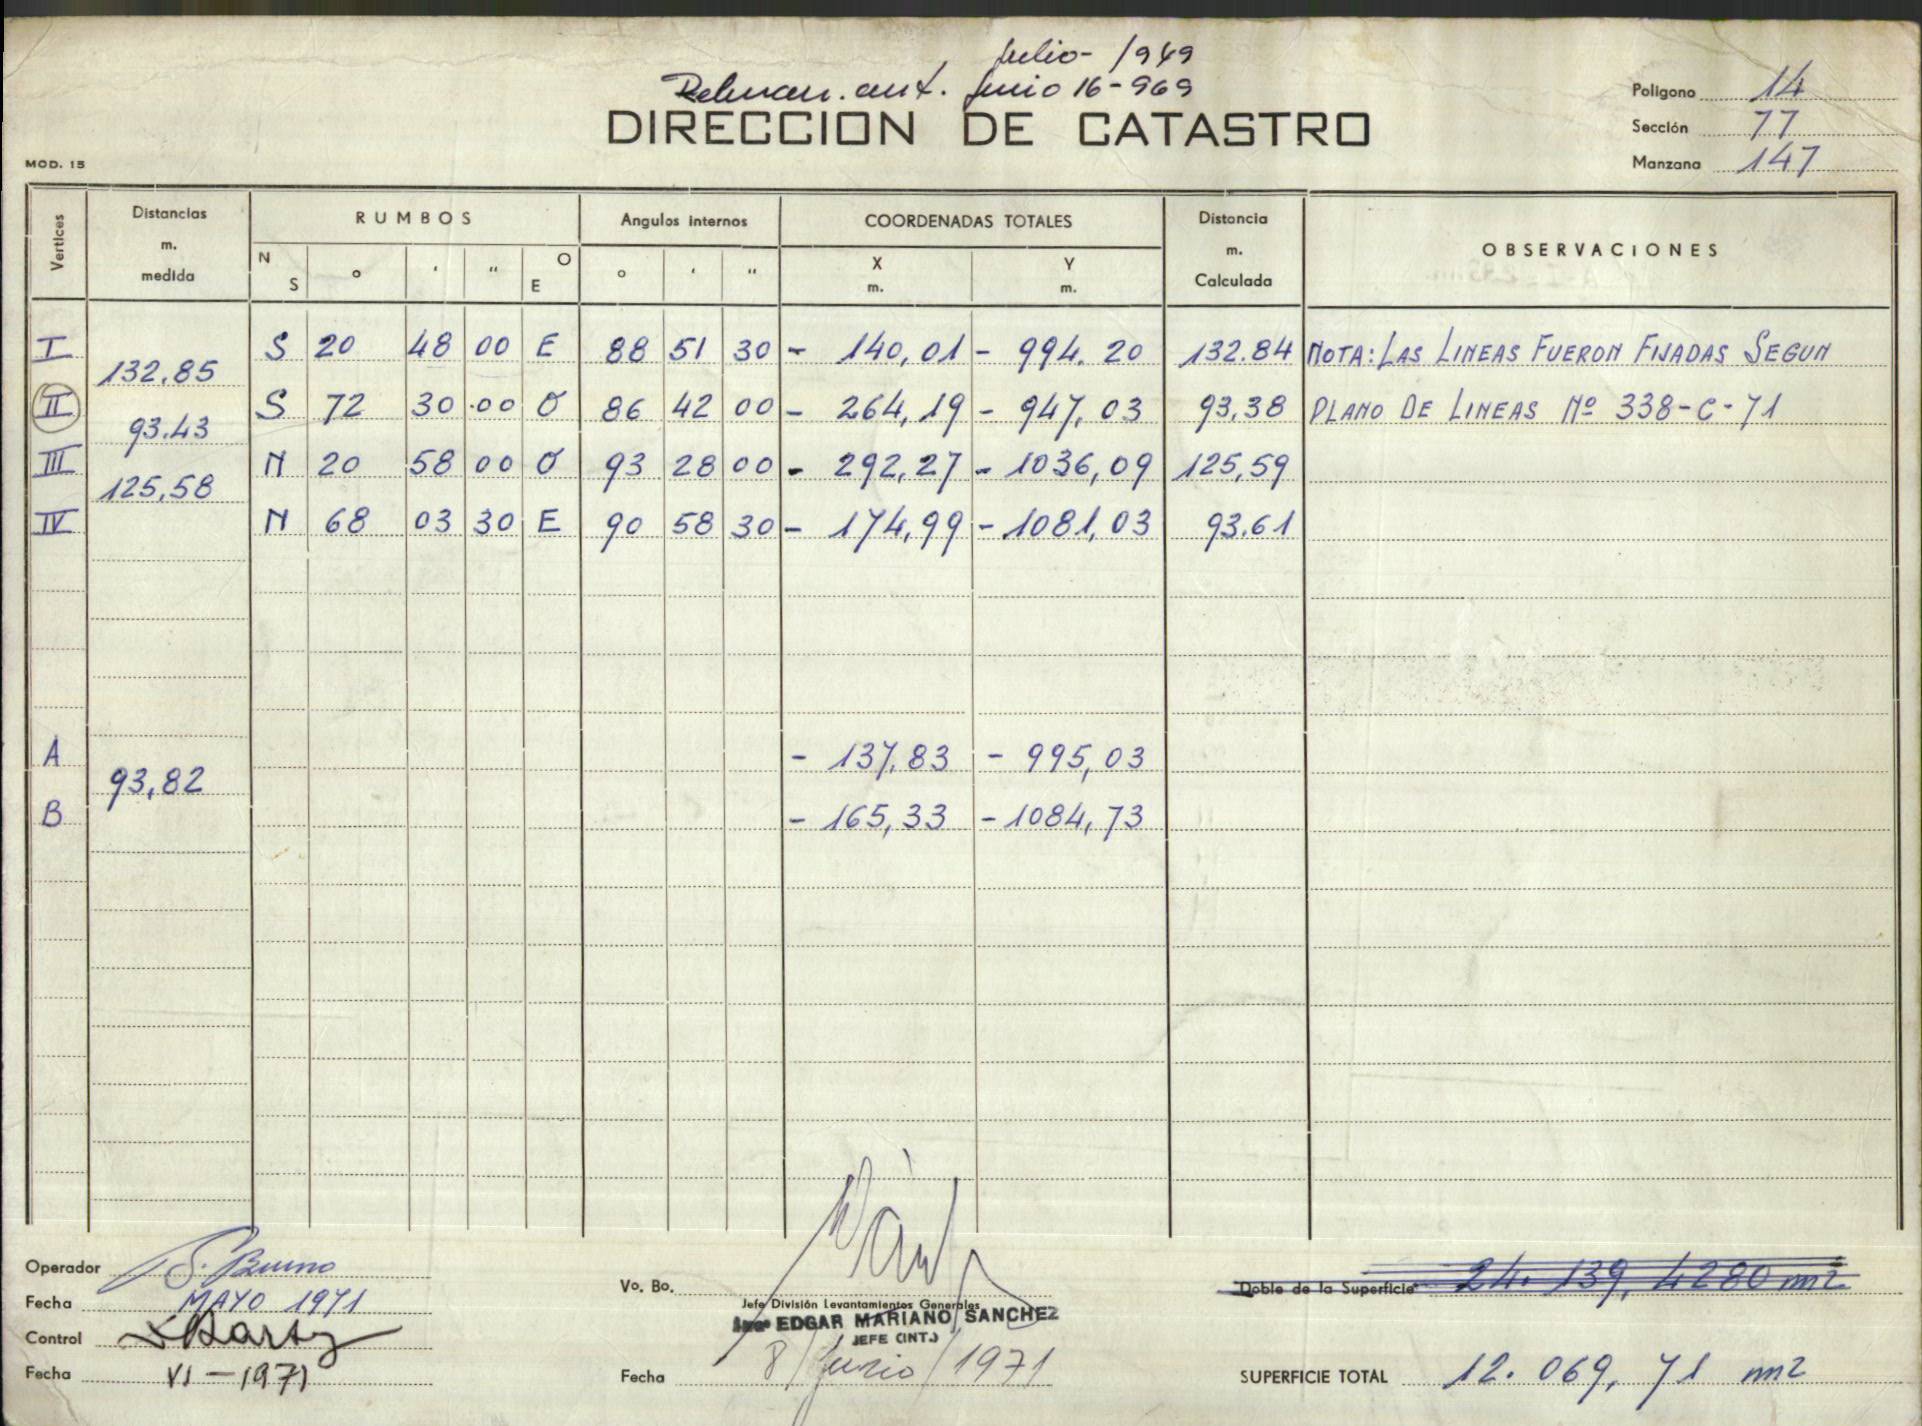 Julio- 1949
ant. Junio 16-969
DIRECCION DE CATASTRO
Poligono 14
Sección 77
Manzana 147
MOD. 15
Vertices
Distancias m. medida
RUMBOS
Angulos internos
COORDENADAS TOTALES
Distancia m. Calculada
OBSERVACIONES
N S ° ' " O E ° ' " X m. Y m.
I S 20 48 00 E 88 51 30 - 140,01 - 994.20 132.84 NOTA: LAS LINEAS FUERON FIJADAS SEGUN
132.85
II S 72 30 00 O 86 42 00 - 264,19 - 947,03 93,38 PLANO DE LINEAS Nº 338-C-71
93.43
III N 20 58 00 O 93 28 00 - 292,27 - 1036,09 125,59
125,58
IV N 68 03 30 E 90 58 30 - 174,99 - 1081,03 93.61
A - 137,83 - 995,03
93,82
B - 165,33 - 1084,73
Operador S. Bruno
Fecha MAYO 1971
Control
Fecha VI-1971
Vo. Bo.
Jefe División Levantamientos Generales
Ingº EDGAR MARIANO SANCHEZ
JEFE (INT.)
Fecha 8/Junio/1971
Doble de la Superficie 24.139,4280 m2
SUPERFICIE TOTAL 12.069,71 m2